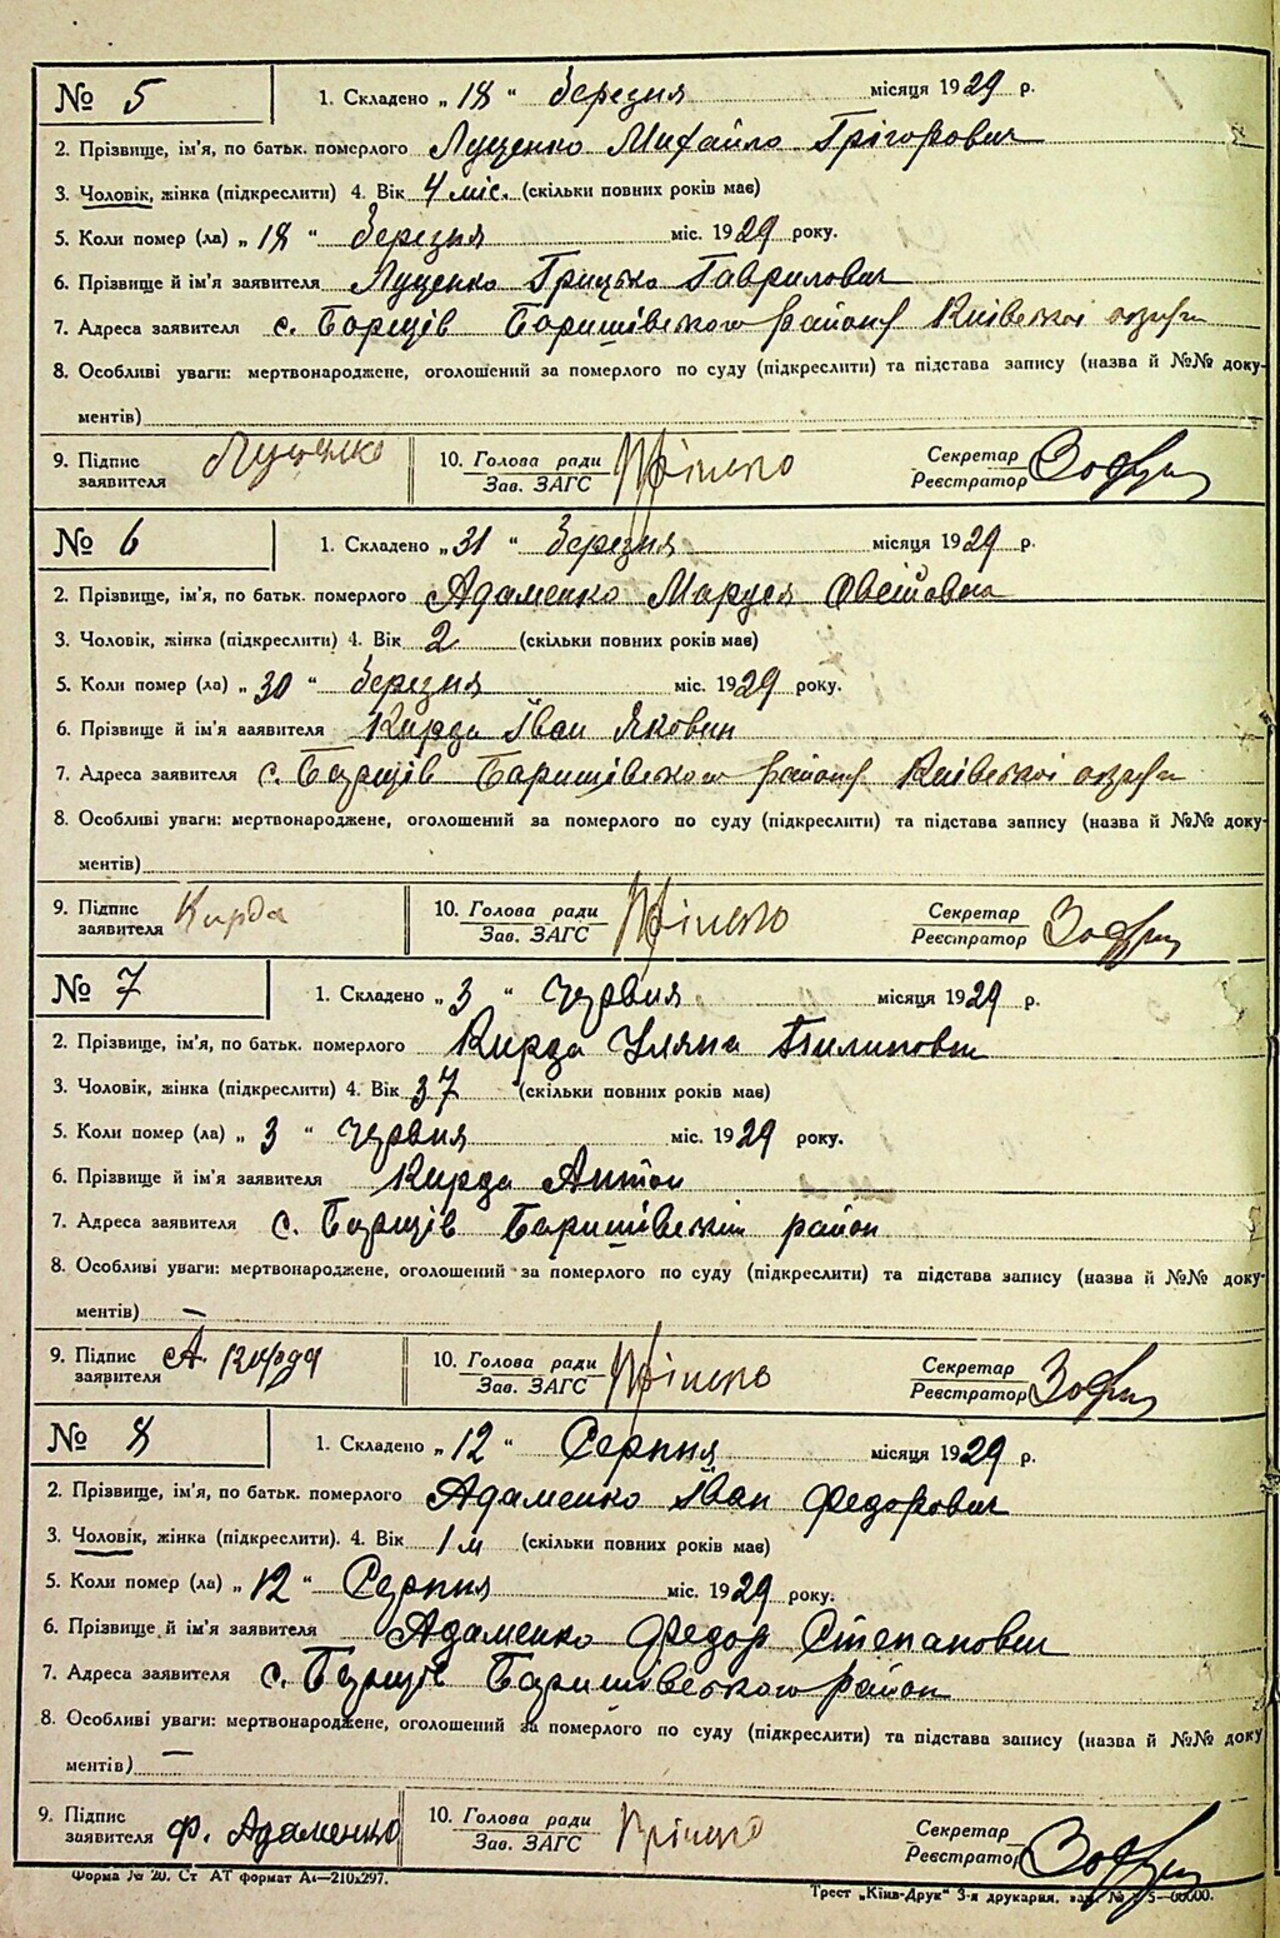 № 5 1. Складено „ 18 “ березня місяця 1929 р.
2. Прізвище, ім'я, по батьк. померлого Луценко Михайло Грігорович
3. Чоловік, жінка (підкреслити) 4. Вік 4 міс. (скільки повних років має)
5. Коли помер (ла) „ 18 “ березня міс. 1929 року.
6. Прізвище й ім'я заявителя Луценко Грицько Гаврилович
7. Адреса заявителя с. Борщів Баришівського району Київської округи
8. Особливі уваги: мертвонароджене, оголошений за померлого по суду (підкреслити) та підстава запису (назва й №№ доку-
ментів)
9. Підпис заявителя Луценко 10. Голова ради Зав. ЗАГС Секретар Реєстратор
№ 6 1. Складено „ 31 “ березня місяця 1929 р.
2. Прізвище, ім'я, по батьк. померлого Адаменко Маруся
3. Чоловік, жінка (підкреслити) 4. Вік 2 (скільки повних років має)
5. Коли помер (ла) „ 30 “ березня міс. 1929 року.
6. Прізвище й ім'я заявителя Кирда Іван Якович
7. Адреса заявителя с. Борщів Баришівського району Київської округи
8. Особливі уваги: мертвонароджене, оголошений за померлого по суду (підкреслити) та підстава запису (назва й №№ доку-
ментів)
9. Підпис заявителя Кирда 10. Голова ради Зав. ЗАГС Секретар Реєстратор
№ 7 1. Складено „ 3 “ червня місяця 1929 р.
2. Прізвище, ім'я, по батьк. померлого Кирда Уляна Пилиповн
3. Чоловік, жінка (підкреслити) 4. Вік 37 (скільки повних років має)
5. Коли помер (ла) „ 3 “ червня міс. 1929 року.
6. Прізвище й ім'я заявителя Кирда Антон
7. Адреса заявителя с. Борщів Баришівський район
8. Особливі уваги: мертвонароджене, оголошений за померлого по суду (підкреслити) та підстава запису (назва й №№ доку-
ментів) —
9. Підпис заявителя А. Кирда 10. Голова ради Зав. ЗАГС Секретар Реєстратор
№ 8 1. Складено „ 12 “ Серпня місяця 1929 р.
2. Прізвище, ім'я, по батьк. померлого Адаменко Іван Федорович
3. Чоловік, жінка (підкреслити). 4. Вік 1 м (скільки повних років має)
5. Коли помер (ла) „ 12 “ Серпня міс. 1929 року.
6. Прізвище й ім'я заявителя Адаменко Федор Степанович
7. Адреса заявителя с. Борщів Баришівського район
8. Особливі уваги: мертвонароджене, оголошений за померлого по суду (підкреслити) та підстава запису (назва й №№ доку
ментів) —
9. Підпис заявителя Ф. Адаменко 10. Голова ради Зав. ЗАГС Секретар Реєстратор
Форма № 20. Ст АТ формат А4—210х297.
Трест „Київ-Друк“ 3-я друкарня.